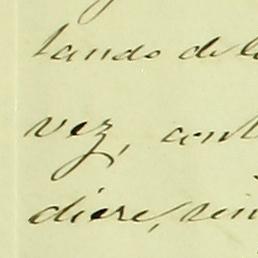 tando de l
vez, cont
diere, sin